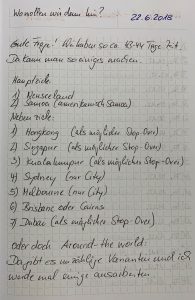 Wo wollen wir denn hin? 22.6.2018
Gute Frage! Wir haben so ca. 43-44 Tage Zeit.
Da kann man so einiges machen.
Hauptziele:
1) Neuseeland
2) Samoa (amerikanisch Samoa)
Nebenziele:
1) Hongkong (als möglicher Stop-Over)
2) Singapur (als möglicher Stop-Over)
3) Kuala Lumpur (als möglicher Stop-Over)
4) Sydney (nur City)
5) Melbourne (nur City)
6) Brisbane oder Cairns
7) Dubai (als möglicher Stop-Over)
oder doch Around-the-world.
Da gibt es unzählige Varianten und ich
werde mal einige ausarbeiten.